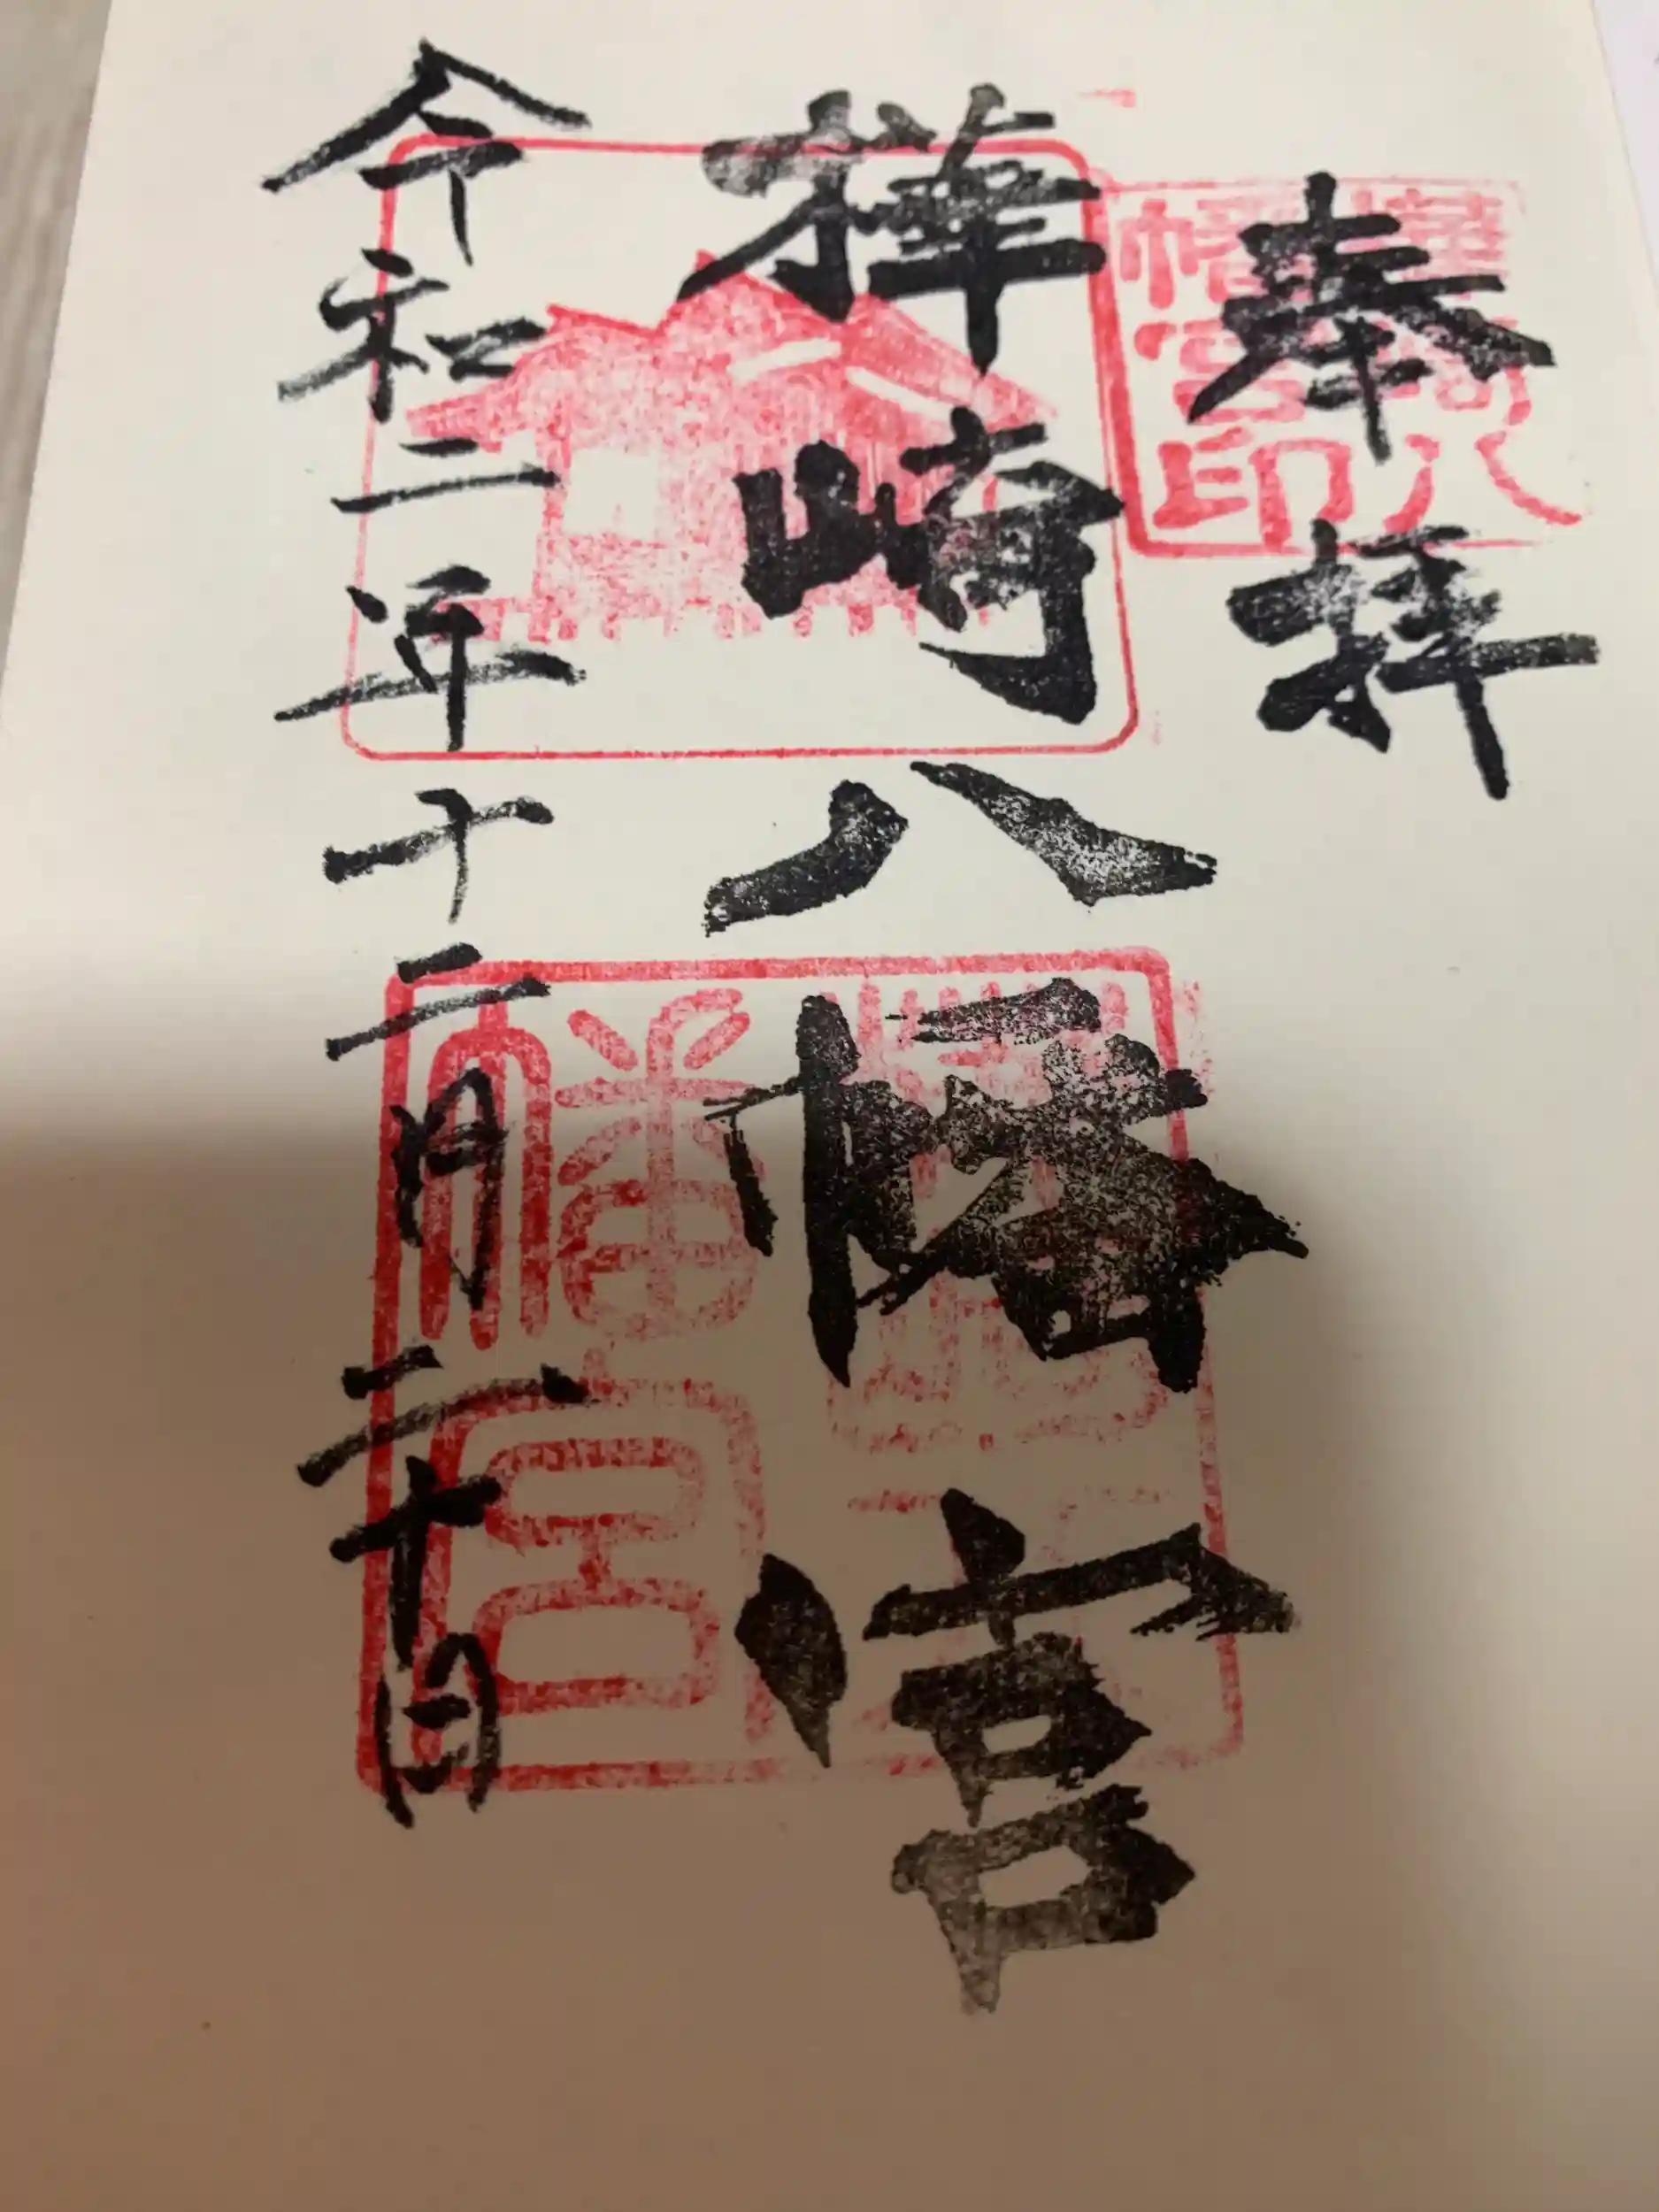 奉拝
樺崎八幡宮
令和二年十二月二十日
八
幡宮印
幡宮